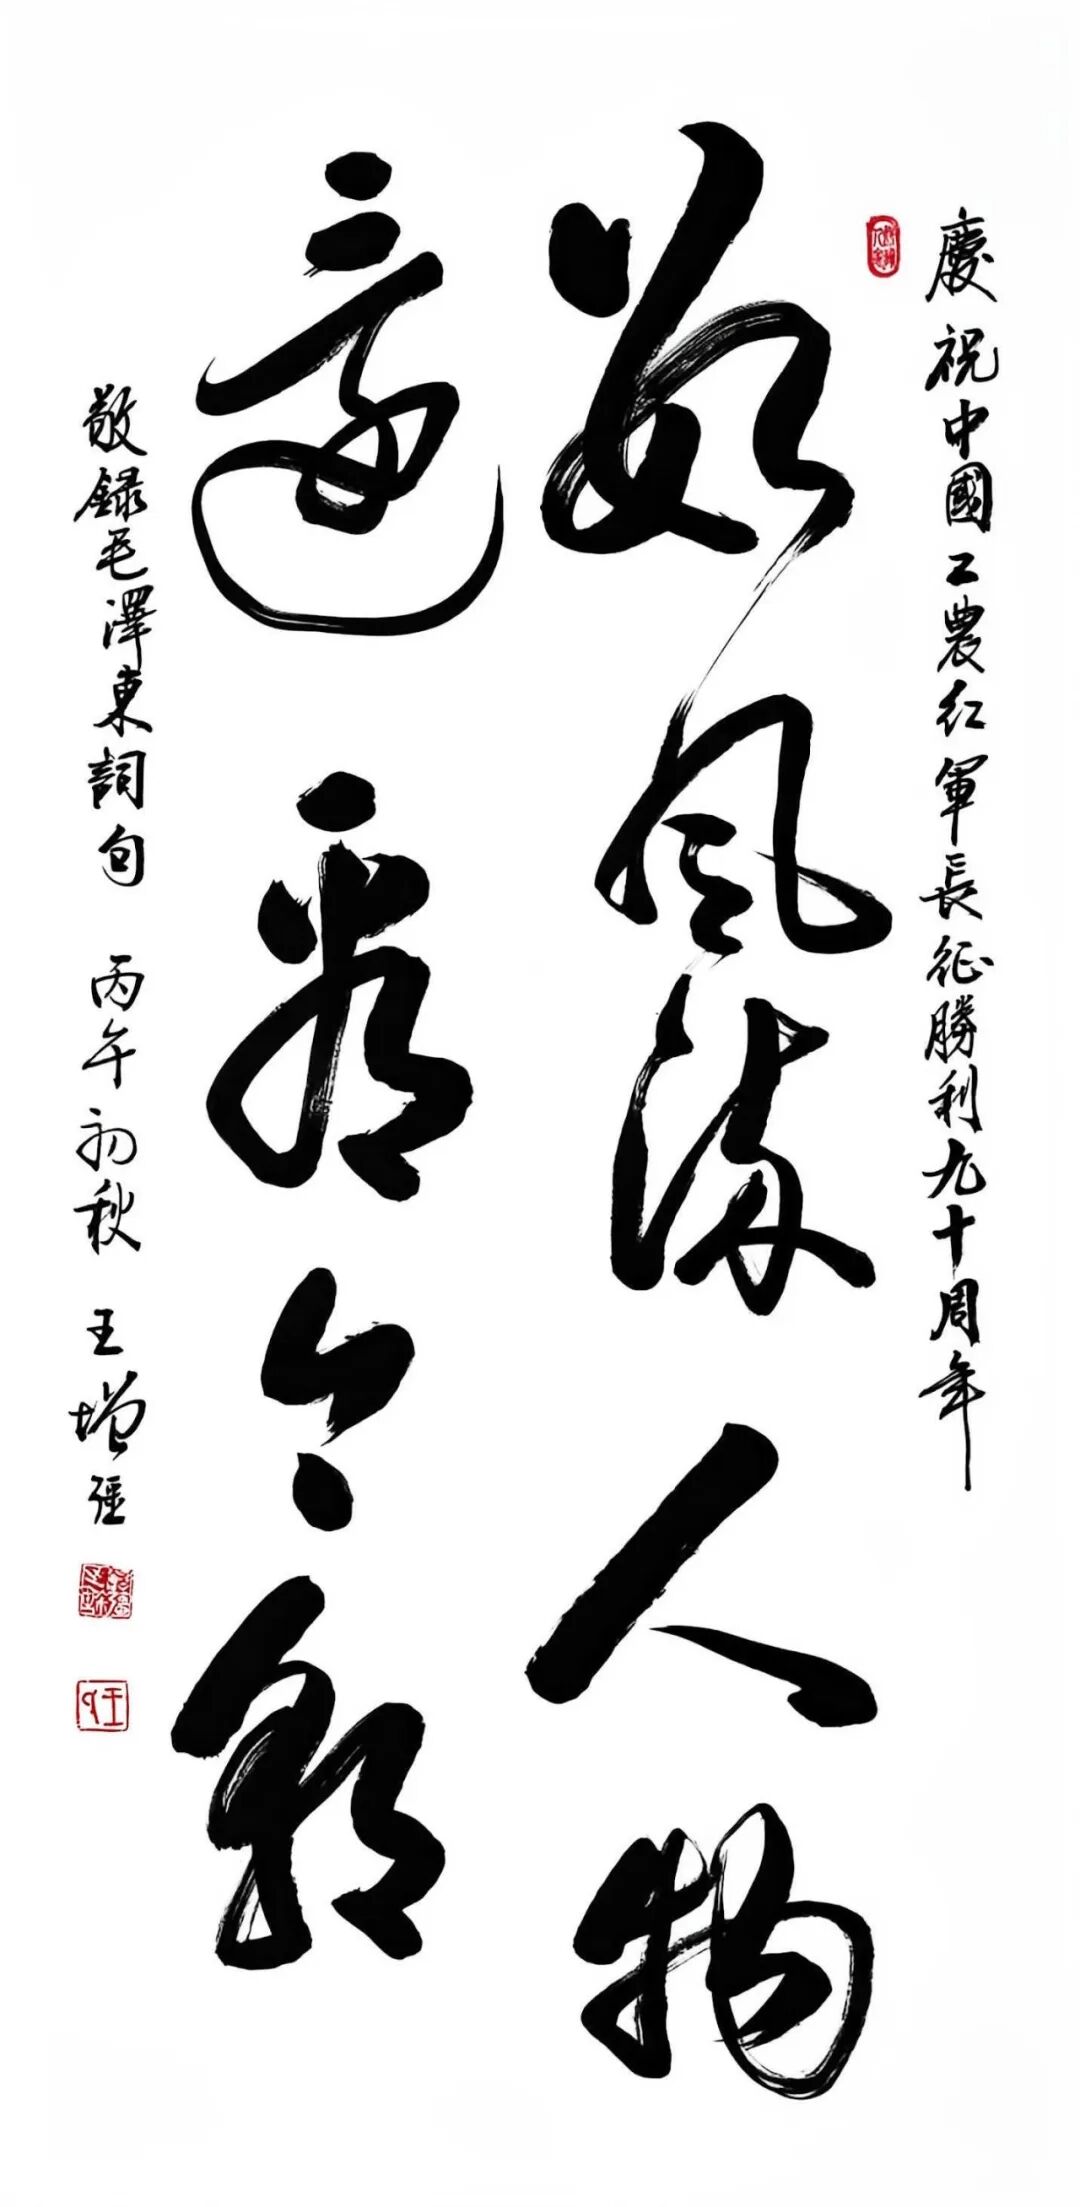 慶祝中國工農紅軍長征勝利九十周年
數風流人物
還看今朝
敬録毛澤東詞句 丙午初秋 王增強